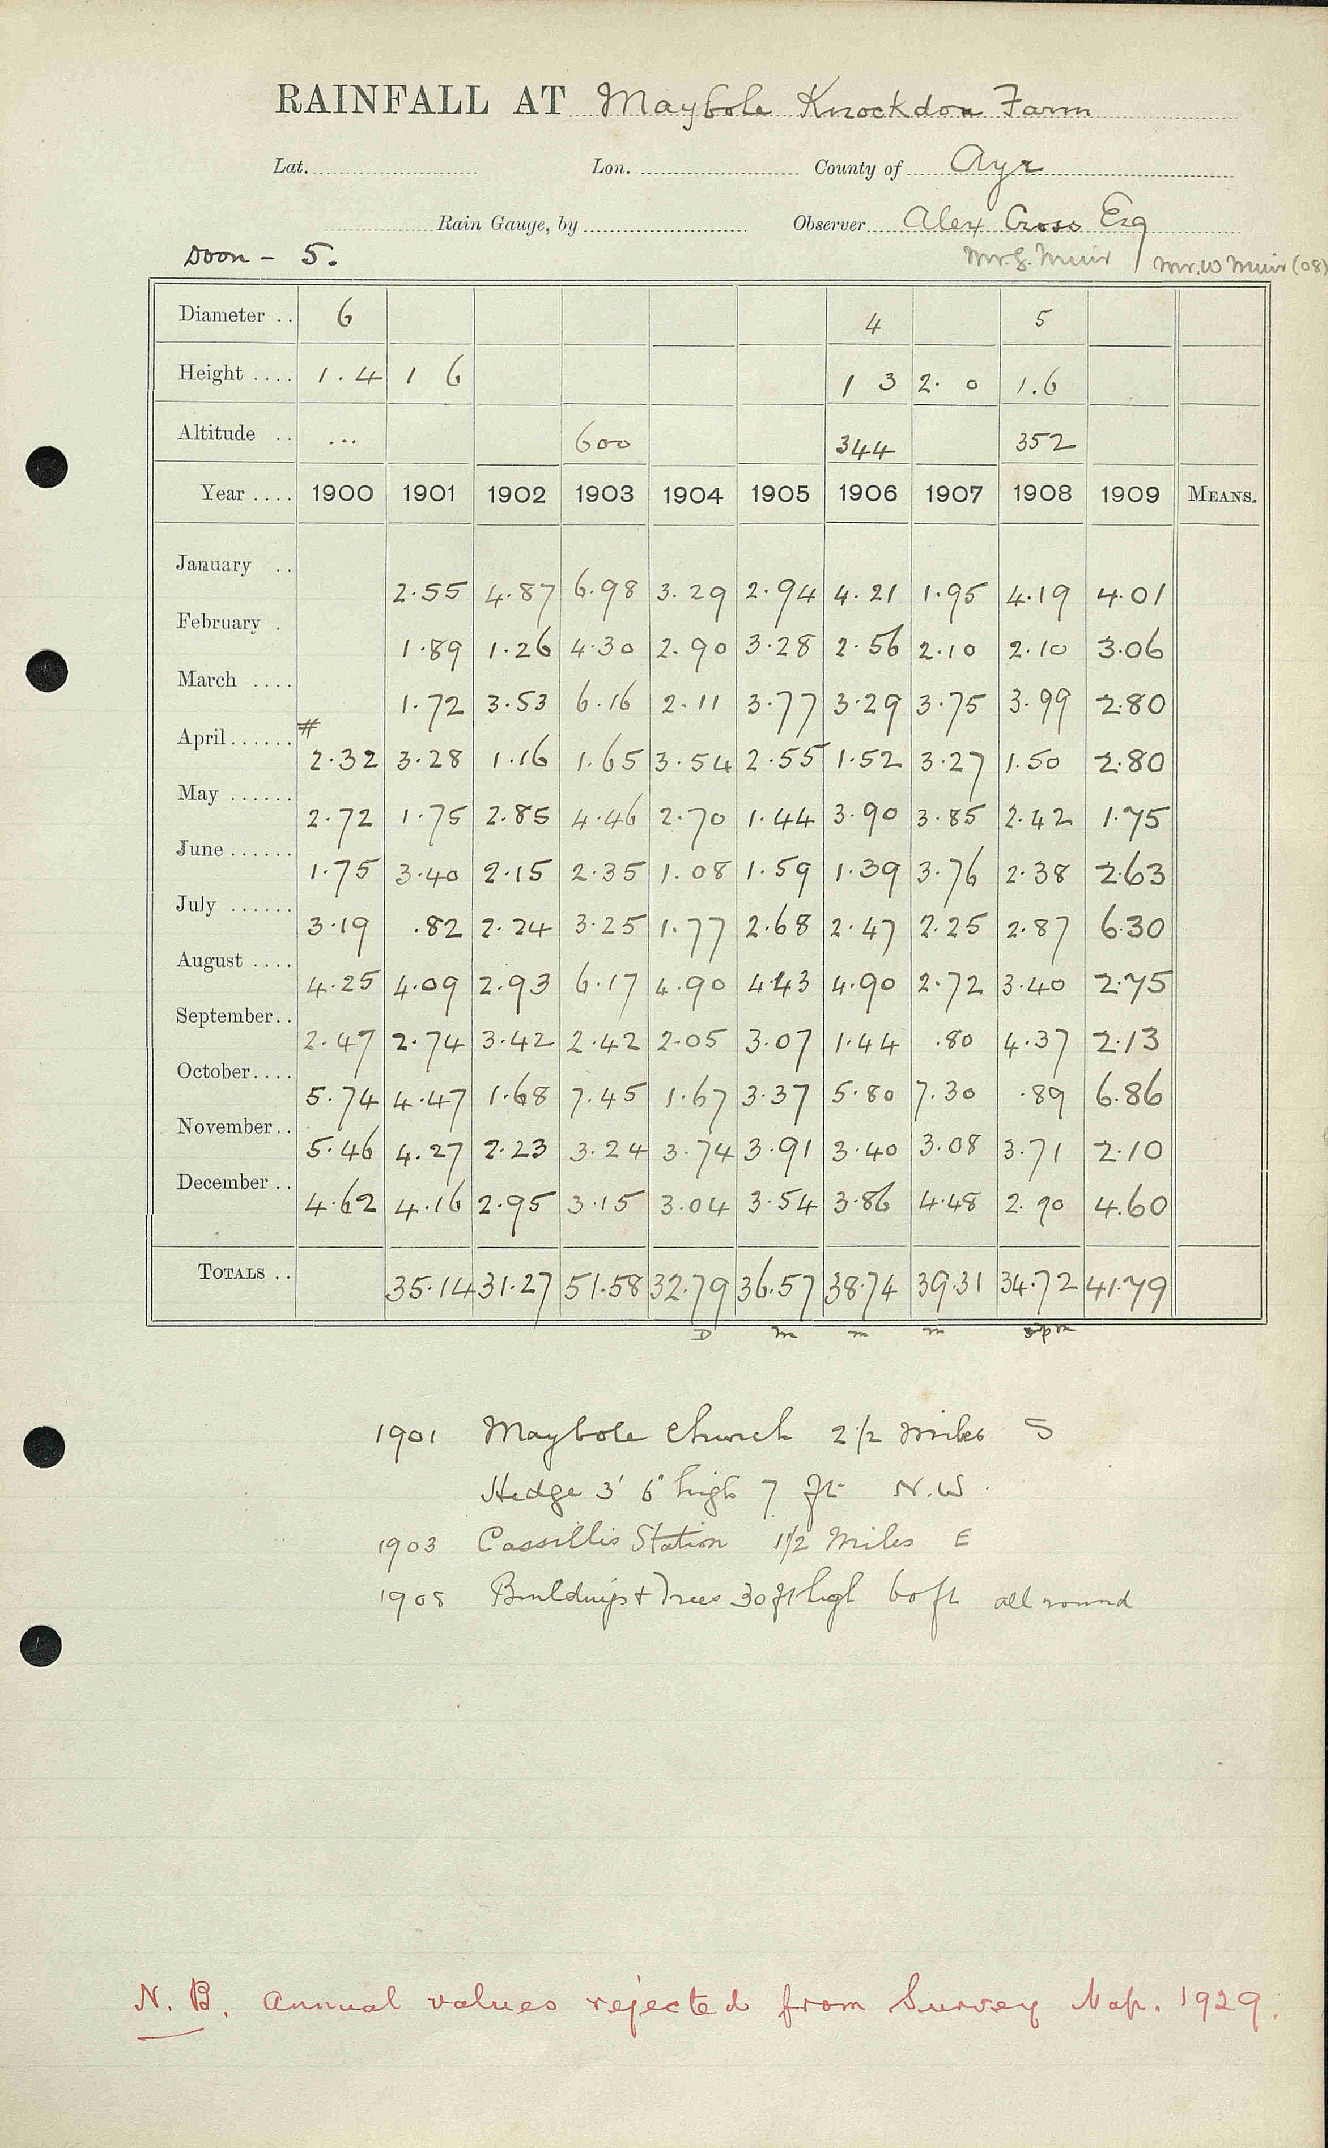 RAINFALL AT Maybole Knockdon Farm
Lat. Lon. County of Ayr
Rain Gauge, by Observer Alex Cross Esq
Doon - 5. Mr G. Muir / Mr. W Muir (08)
Diameter .. 6 4 5
Height .... 1.4 1 6 1 3 2. 0 1.6
Altitude .. ... 600 344 352
Year .... 1900 1901 1902 1903 1904 1905 1906 1907 1908 1909 MEANS.
January .. 2.55 4.87 6.98 3.29 2.94 4.21 1.95 4.19 4.01
February . 1.89 1.26 4.30 2.90 3.28 2.56 2.10 2.10 3.06
March .... 1.72 3.53 6.16 2.11 3.77 3.29 3.75 3.99 2.80
April ...... # 2.32 3.28 1.16 1.65 3.54 2.55 1.52 3.27 1.50 2.80
May ...... 2.72 1.75 2.85 4.46 2.70 1.44 3.90 3.85 2.42 1.75
June ...... 1.75 3.40 2.15 2.35 1.08 1.59 1.39 3.76 2.38 2.63
July ...... 3.19 .82 2.24 3.25 1.77 2.68 2.47 2.25 2.87 6.30
August .... 4.25 4.09 2.93 6.17 4.90 4.43 4.90 2.72 3.40 2.75
September.. 2.47 2.74 3.42 2.42 2.05 3.07 1.44 .80 4.37 2.13
October.... 5.74 4.47 1.68 7.45 1.67 3.37 5.80 7.30 .89 6.86
November.. 5.46 4.27 2.23 3.24 3.74 3.91 3.40 3.08 3.71 2.10
December .. 4.62 4.16 2.95 3.15 3.04 3.54 3.86 4.48 2.90 4.60
TOTALS .. 35.14 31.27 51.58 32.79 36.57 38.74 39.31 34.72 41.79
D m m m
1901 Maybole Church 2 1/2 miles S
Hedge 3' 6" high 7 ft N.W.
1903 Cassillis Station 1 1/2 Miles E
1908 Buildings + Trees 30 ft high 60 ft all round
N. B. Annual values rejected from Survey Map. 1929.